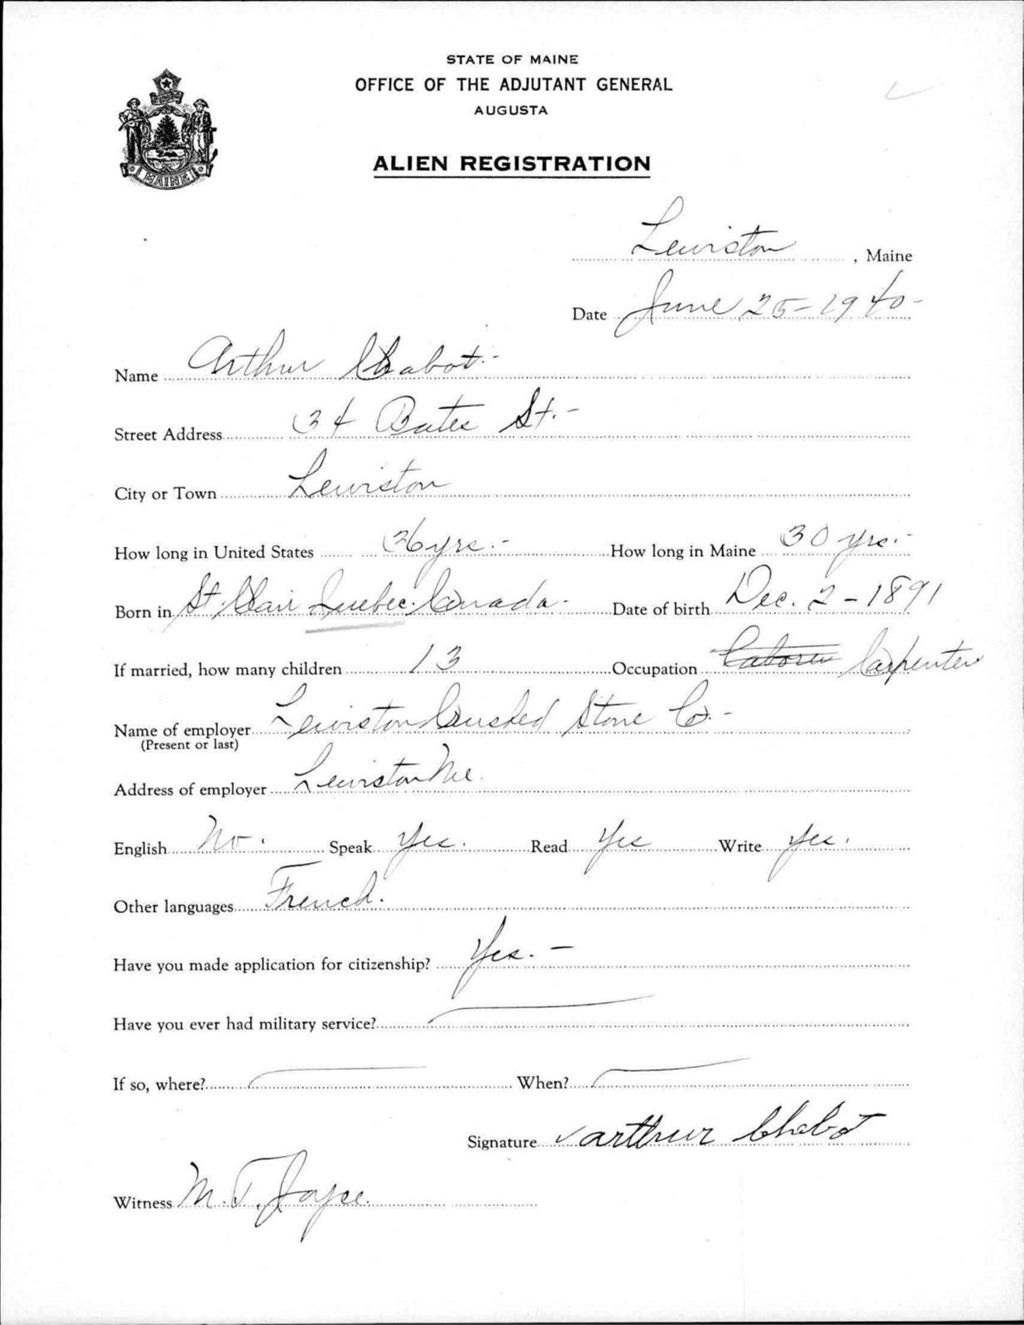 STATE OF MAINE
OFFICE OF THE ADJUTANT GENERAL
AUGUSTA
ALIEN REGISTRATION
MAINE
Lewiston, Maine
Date June 25-1940-
Name Arthur Chabot-
Street Address 34 Bates St.-
City or Town Lewiston
How long in United States 36 yrs.- How long in Maine 30 yrs.-
Born in St. Clair Quebec. Canada- Date of birth Dec. 2-1891
If married, how many children 13 Occupation Laborer Carpenter
Name of employer Lewiston Crushed Stone Co.-
(Present or last)
Address of employer Lewiston Me.
English No. Speak Yes. Read Yes Write Yes.
Other languages French.
Have you made application for citizenship? Yes.-
Have you ever had military service? —
If so, where? — When? —
Signature arthur Chabot
Witness M. T. Joyce.